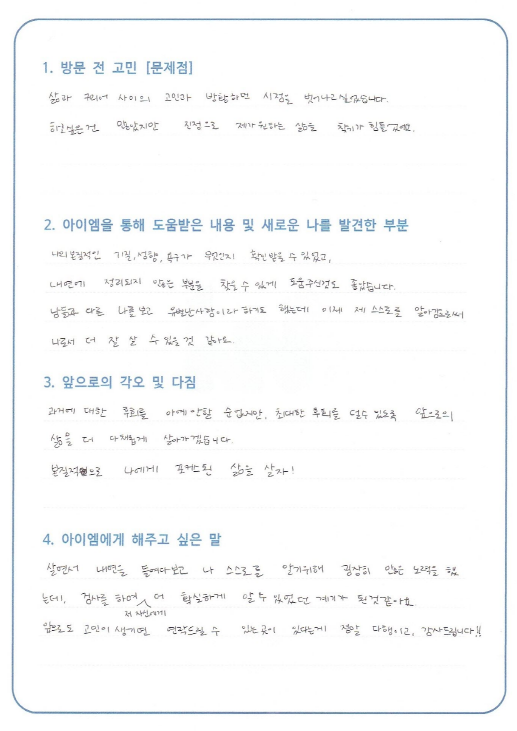 1. 방문 전 고민 [문제점]
삶과 커리어 사이의 고민과 방황하던 시점을 벗어나고 싶었습니다.
하고싶은건 많았지만 진정으로 제가 원하는 삶을 찾기가 힘들었어요.
2. 아이엠을 통해 도움받은 내용 및 새로운 나를 발견한 부분
나의 본질적인 기질, 성향, 욕구가 무엇인지 확인받을 수 있었고,
내면에 정리되지 않은 부분을 찾을 수 있게 도움주신것도 좋았습니다.
남들과 다른 나를 보고 유별난사람이라 하기도 했는데 이제 제 스스로를 알아감으로써
나로서 더 잘 살 수 있을 것 같아요.
3. 앞으로의 각오 및 다짐
과거에 대한 후회를 아예 안할 순 없지만, 최대한 후회를 덜 수 있도록 앞으로의
삶을 더 다채롭게 살아가겠습니다.
본질적으로 나에게 포커스된 삶을 살자!
4. 아이엠에게 해주고 싶은 말
살면서 내면을 들여다보고 나 스스로를 알기위해 굉장히 많은 노력을 했
는데, 검사를 하여 더 확실하게 알 수 있었던 계기가 된것같아요
저 자신에게
앞으로도 고민이 생기면 연락드릴 수 있는 곳이 있다는게 정말 다행이고, 감사드립니다!!